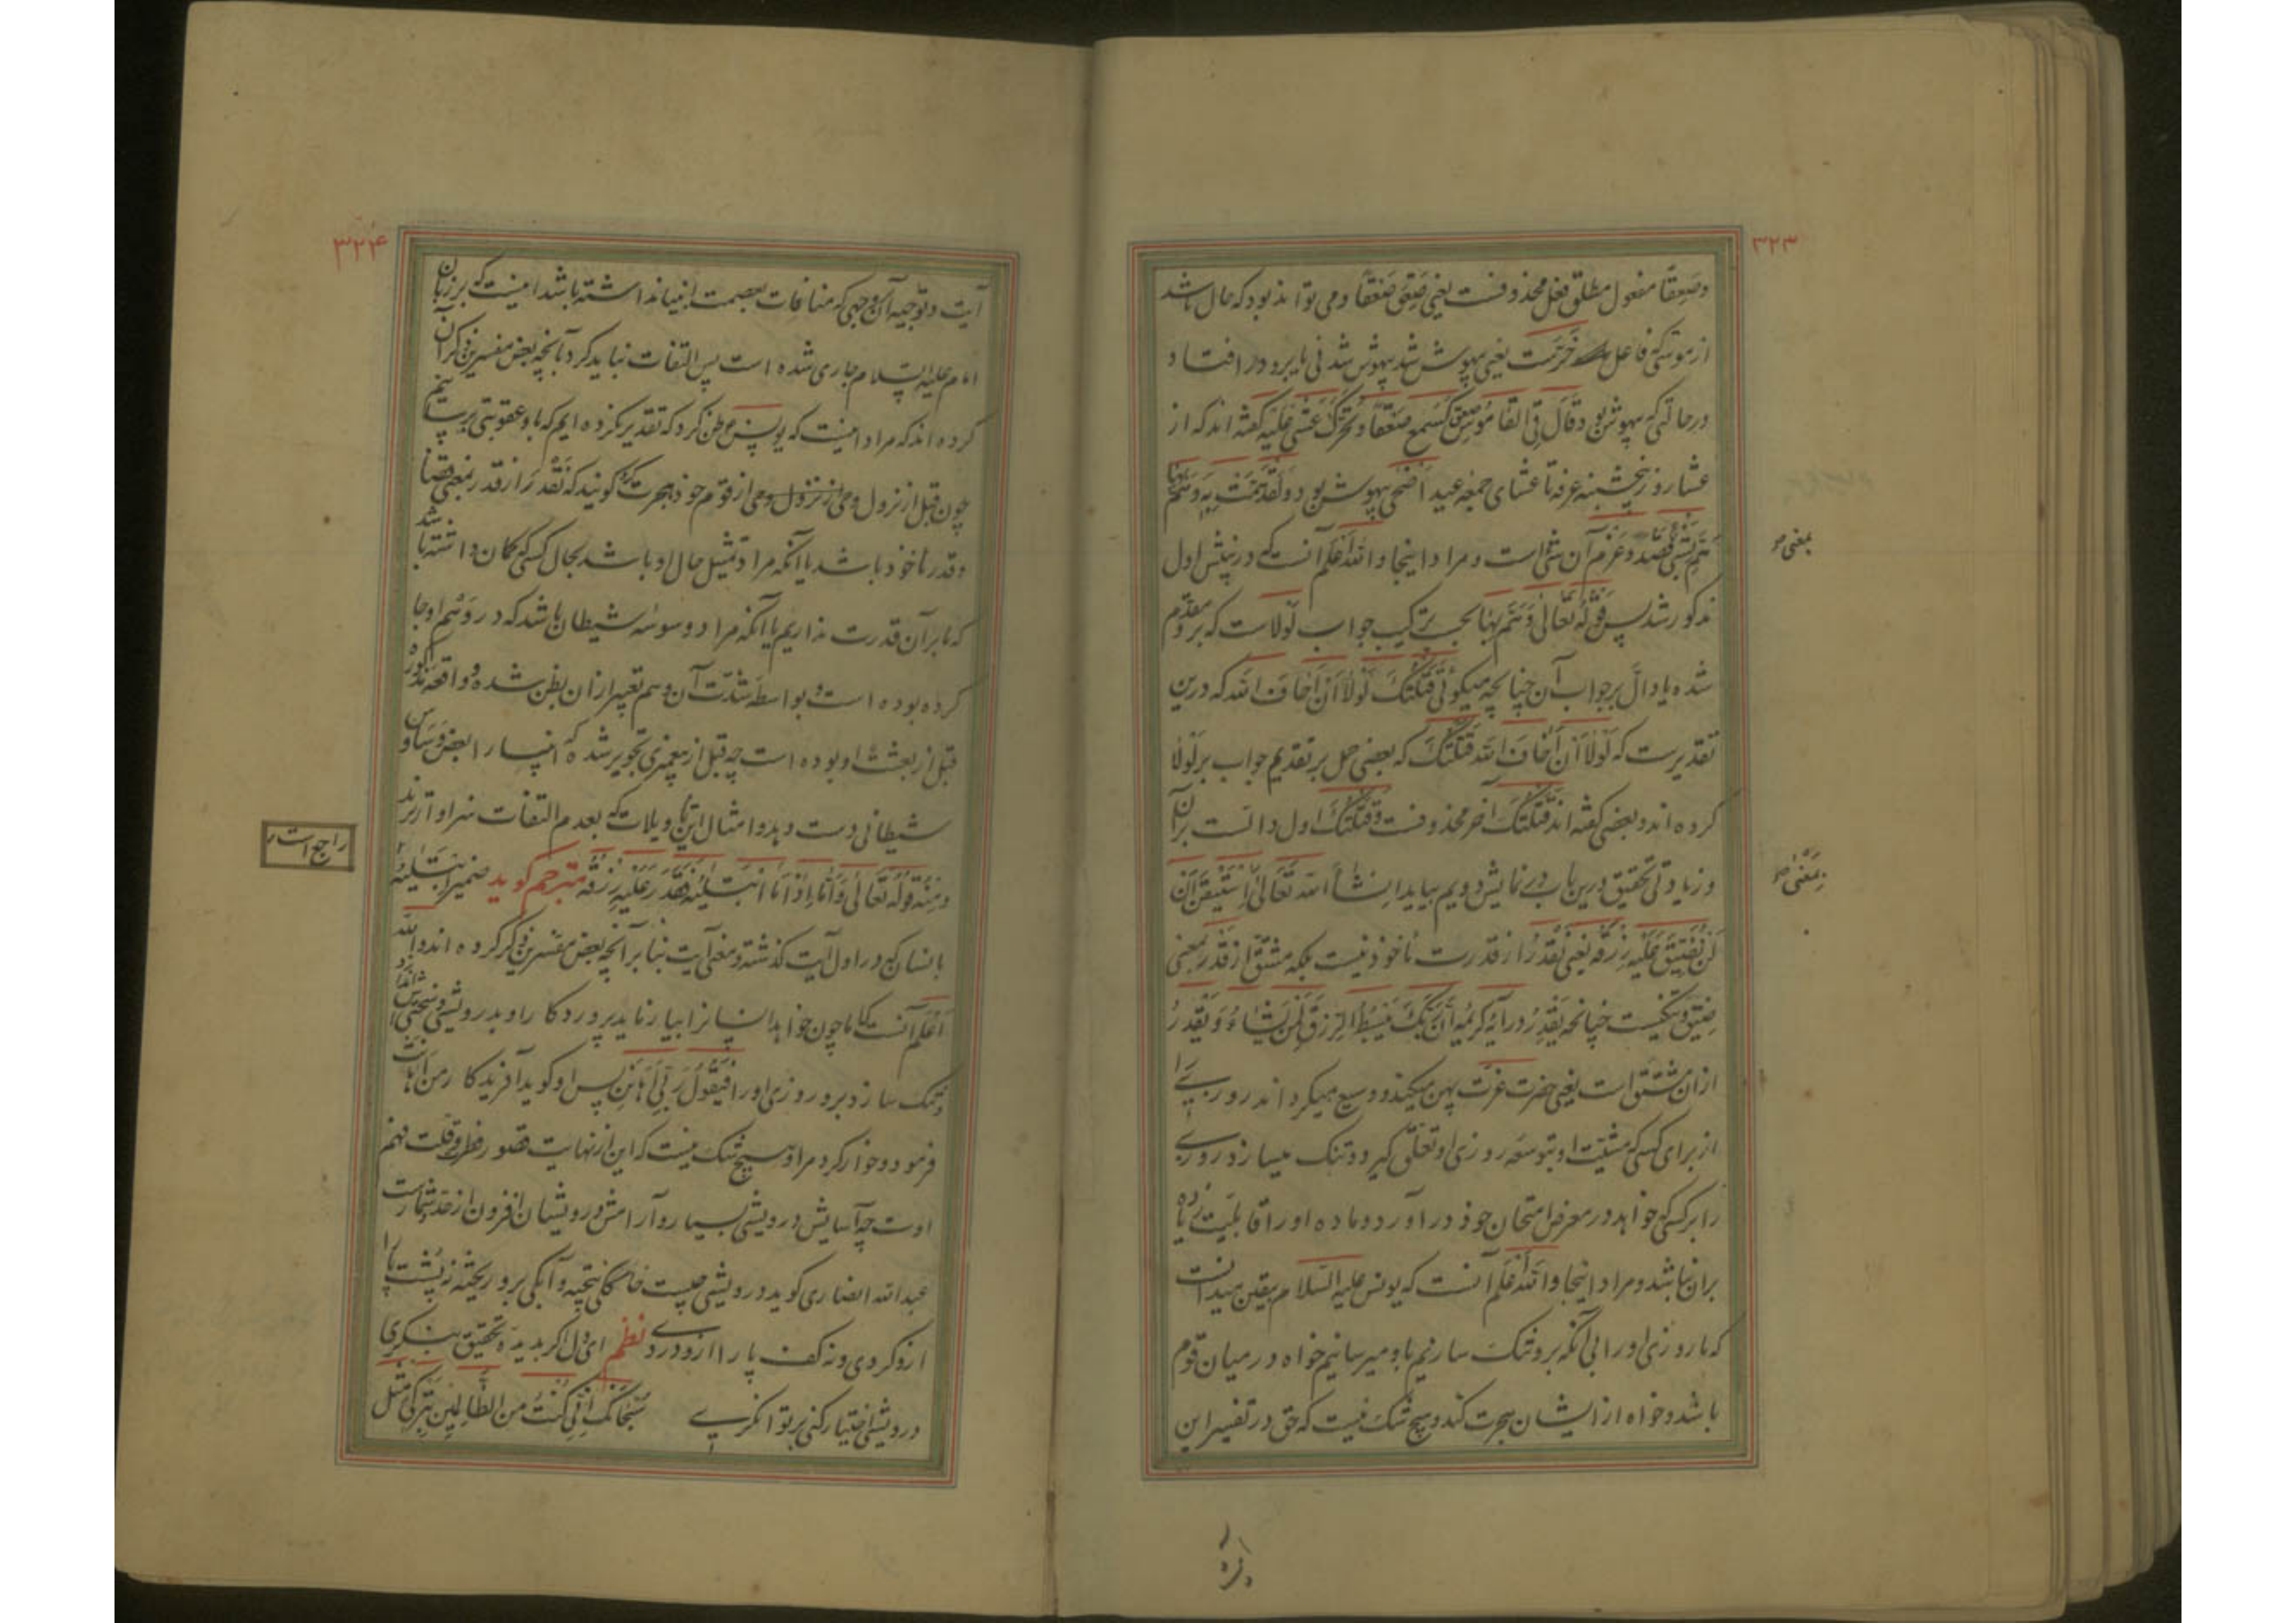 ۳۲۳
وصَعِقًا مفعول مطلق فعل محذوفست یعنی صَعِقَ صَعْقًا و می تواند بود که حال باشد
از موسی که فاعل خَرَّست یعنی بیهوش شد بیهوش شدنی یا برو در افتاد
در حالتی که بیهوش بود وَقَالَ فِی القَامُوسِ صَعِقَ کَسَمِعَ صَعْقًا وَیُحَرَّکُ غُشِیَ عَلَیْهِ گفته اند که از
عشاء روز پنجشنبه عرفه تا عشای جمعه عید اضحی بیهوش بود وَلَقَدْ هَمَّتْ بِهِ وَهَمَّ بِهَا
هَمّ بشی قصد و عزم آن شی است و مراد اینجا وَاللهُ اَعْلَم آنست که در پیش اول
مذکور شد پس قَوْلُهُ تَعَالَی وَهَمَّ بِهَا بحسب ترکیب جواب لَوْلَاست که برو مقدم
شده یا دالّ بر جواب آن چنانچه میگوئی قَتَلْتُکَ لَوْلَا اَنْ اَخَافَ الله که درین
تقدیرست که لَوْلَا اَنْ اَخَافَ الله قَتَلْتُکَ که بعضی حمل بر تقدیم جواب بر لَوْلَا
کرده اند و بعضی گفته اند قَتَلْتُکَ آخر محذوفست و قَتَلْتُکَ اول دالست بر آن
و زیادتی تحقیق درین باب در نمایش دویم بیاید اِنْشَاءَ الله تَعَالَی اِسْتَیْقَنَ اَنْ
لَنْ نُضَیِّقَ عَلَیْهِ رِزْقَهُ یعنی نَقْدِرُ از قدرت ماخوذ نیست بلکه مشتق از قَدْر بمعنی
ضیق و تنگیست چنانچه یَقْدِرُ در آیه کریمه اِنَّ رَبَّکَ یَبْسُطُ الرِّزْقَ لِمَنْ یَشَاءُ وَیَقْدِرُ
از آن مشتق است یعنی حضرت عزت پهن میکند و وسیع میگرداند روزی را
از برای کسی که مشیت او بتوسعه روزی او تعلق گیرد و تنگ میسازد روزی
را بر کسی که خواهد در معرض امتحان خود در آورد و ماده او را قابلیت زیاده
بر آن نباشد و مراد اینجا وَاللهُ اَعْلَم آنست که یونس علیه السلام بیقین میدانست
که ما روزی او را بی آنکه برو تنگ سازیم باو میرسانیم خواه در میان قوم
باشد و خواه از ایشان هجرت کند و هیچ شک نیست که حق در تفسیر این
بمعنی
بمعنی
۳۲۴
آیت و توجیه آن وجهی که منافات بعصمت انبیا نداشته باشد اینست که بر زبان
امام علیه السلام جاری شده است پس التفات نباید کرد بآنچه بعض مفسرین ذکر آن
کرده اند که مراد اینست که یونس ع ظن کرد که تقدیر نکرده ایم که باو عقوبتی برسانیم
چون قبل از نزول وحی از قوم خود هجرت کرد گویند که نَقْدِرَ از قدر بمعنی قضا
و قدر ماخوذ باشد یا آنکه مراد تمثیل حال او باشد بحال کسی که گمان داشته باشد
که ما بر آن قدرت نداریم یا آنکه مراد وسوسه شیطان باشد که در وَهْم او جا
کرده بوده است و بواسطه شدت آن وهم تعبیر از آن بظن شده و واقعه مذکوره
قبل از بعثت او بوده است چه قبل از پیغمبری تجویز شده که انبیا را بعض وساوس
شیطانی دست دهد و امثال این تاویلات که بعدم التفات سزاوارترند
وَمِنْهُ قَوْلُهُ تَعَالَی وَاَمَّا اِذَا مَا ابْتَلَیٰهُ فَقَدَرَ عَلَیْهِ رِزْقَهُ مترجم گوید ضمیر ابْتَلَیٰهُ
راجع است
بانسان که در اول آیت گذشته و معنی آیت بنا بر آنچه بعض مفسرین ذکر کرده اند والله
اَعْلَم آنست که اما چون خواهد انسان را بیازماید پروردگار او بدرویشی و سختی
و تنگ سازد برو روزی او را فَیَقُولُ رَبِّی اَهَانَنِ پس او گوید آفریدگار من اهانت
فرمود و خوار کرد مرا و هیچ شک نیست که این از نهایت قصور نظر و قلت فهم
اوست چه آسایش درویشی بسیار و آرامش درویشان افزون از حد شمارست
عبدالله انصاری گوید درویشی چیست خاککی بیخته و آبکی برو ریخته نه پشت پا را
ازو گردی و نه کف پا را ازو دردی نظم ای دل اگر بدیده تحقیق بنگری
درویشی اختیار کنی بر توانگری سُبْحَانَکَ اِنِّی کُنْتُ مِنَ الظَّالِمِینَ بِتَرْکِی مِثْلَ